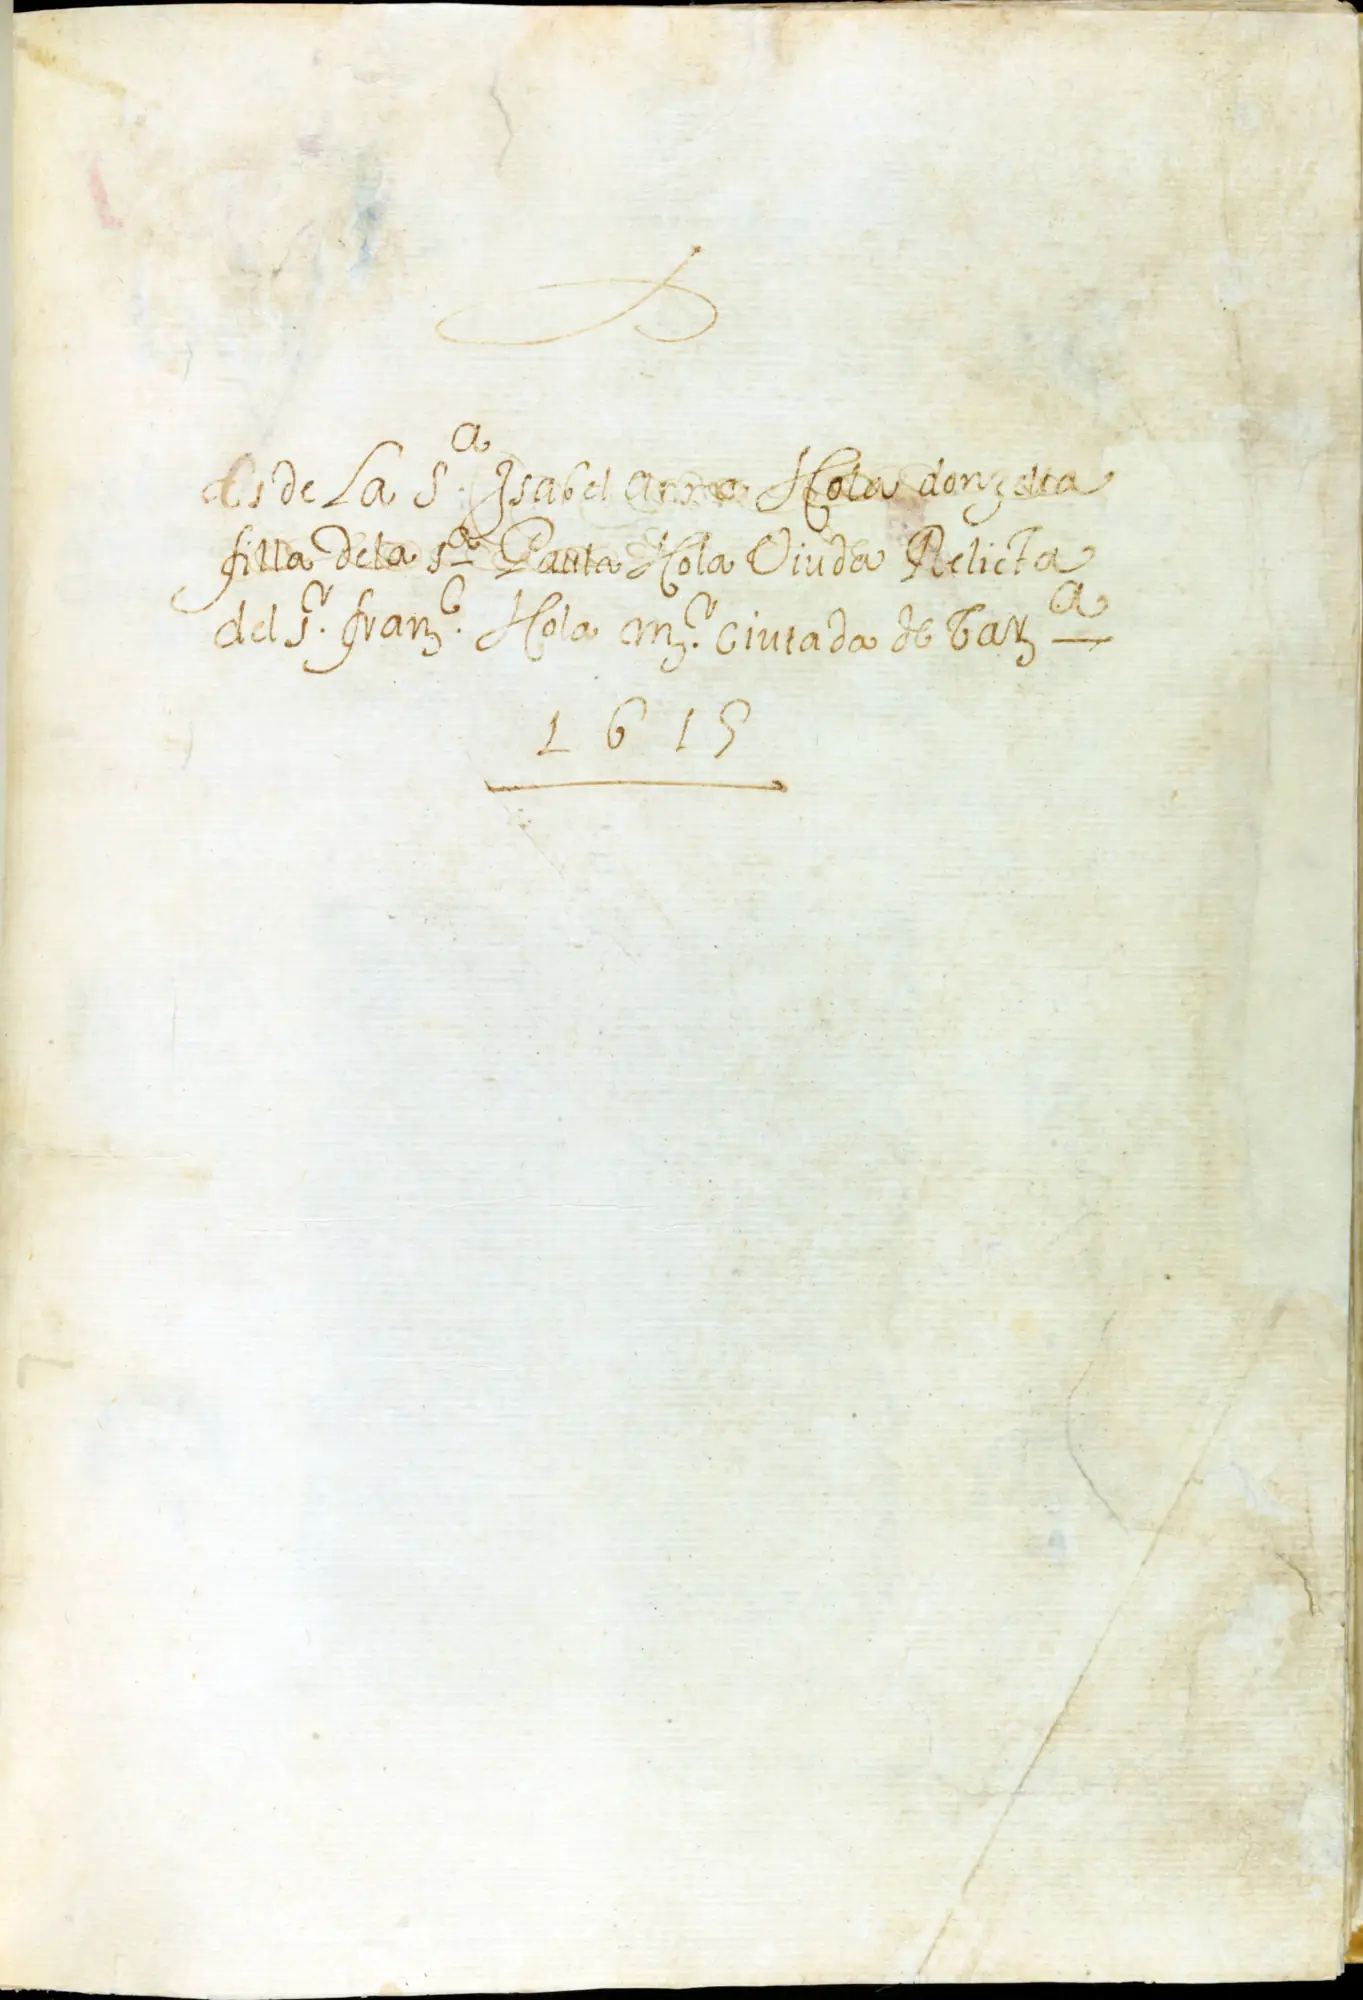 es de La S.ª Ysabel Anna Hola donzella
filla dela S.ª Paula Hola Viuda Relicta
del S.r fran.c Hola m.r Ciutada de Tarª
1615